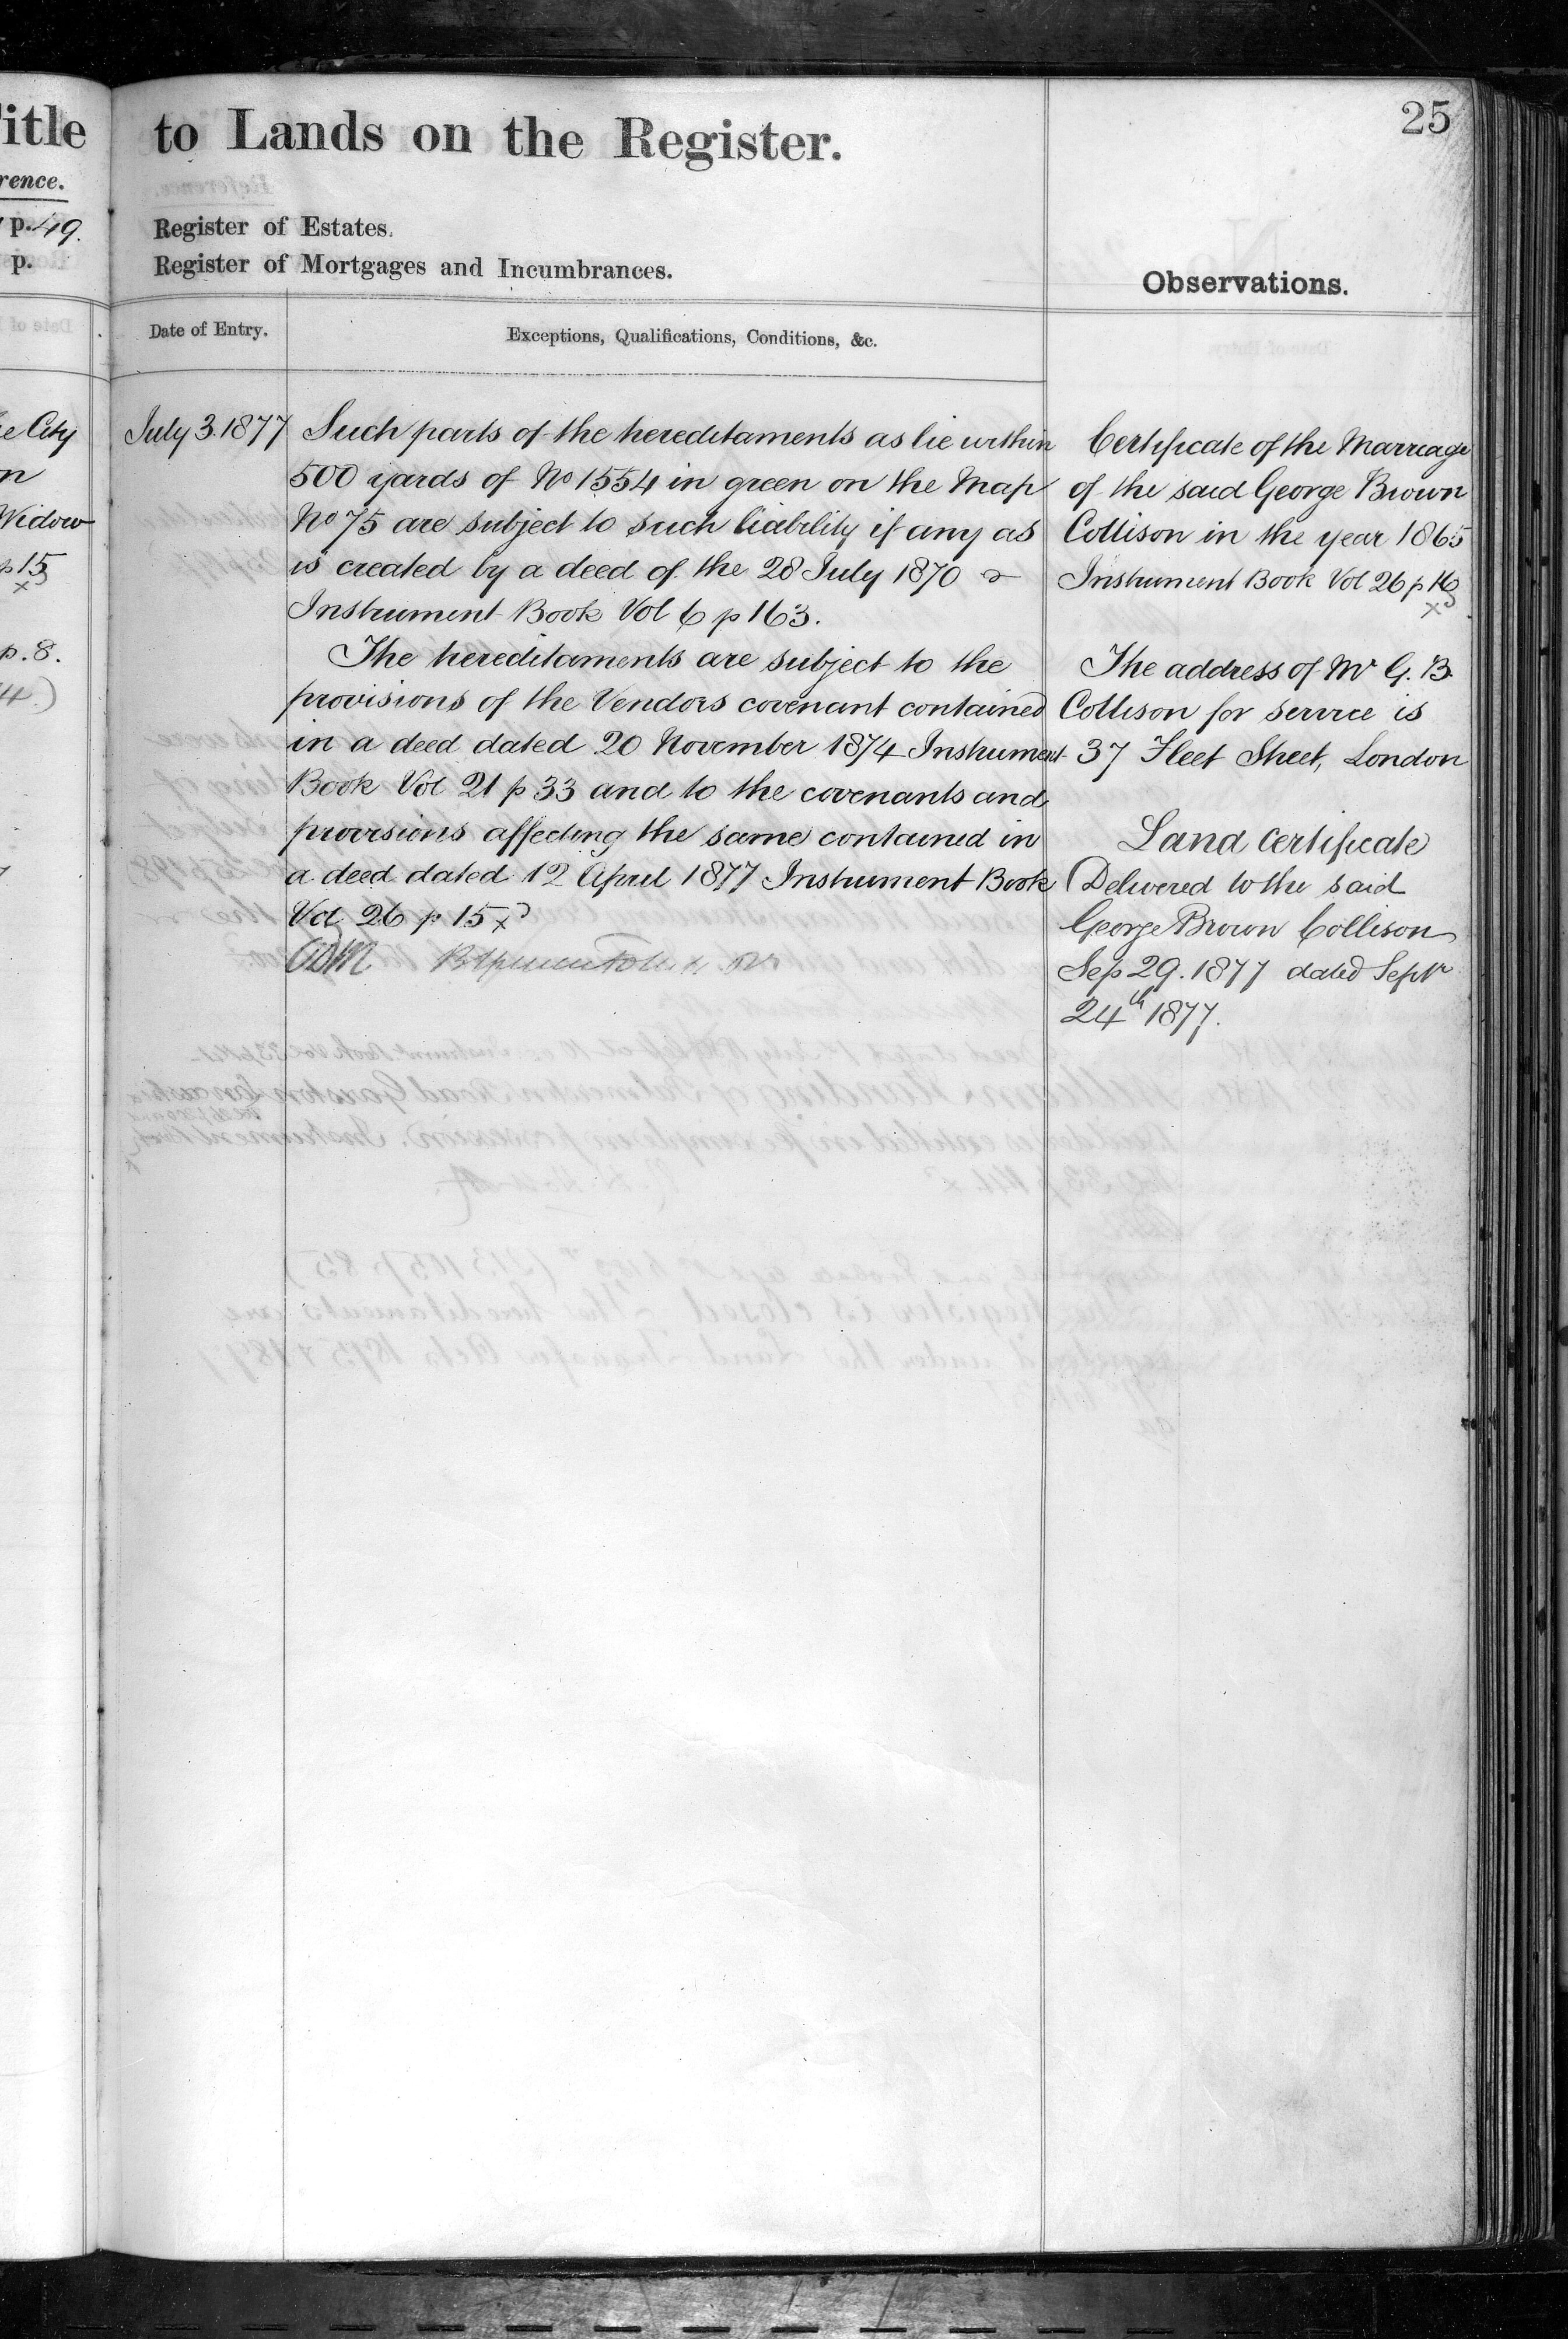 itle
rence.
p. 49.
p.
e City
n
Widow
p 15
x
p. 8.
4.)
25
to Lands on the Register.
Register of Estates.
Register of Mortgages and Incumbrances.
Date of Entry.
Exceptions, Qualifications, Conditions, &c.
July 3. 1877
Such parts of the hereditaments as lie within
500 yards of No 1554 in green on the Map
No 75 are subject to such liability if any as
is created by a deed of the 28 July 1870
Instrument Book Vol 6 p 163.
The hereditaments are subject to the
provisions of the Vendors covenant contained
in a deed dated 20 November 1874 Instrument
Book Vol 21 p 33 and to the covenants and
provisions affecting the same contained in
a deed dated 12 April 1877 Instrument Book
Vol 26 p 15 x
Observations.
Certificate of the Marriage
of the said George Brown
Collison in the year 1865
Instrument Book Vol 26 p 16
x
The address of Mr G. B.
Collison for service is
37 Fleet Street, London
Land Certificate
Delivered to the said
George Brown Collison
Sep 29. 1877 dated Septr
24th 1877.